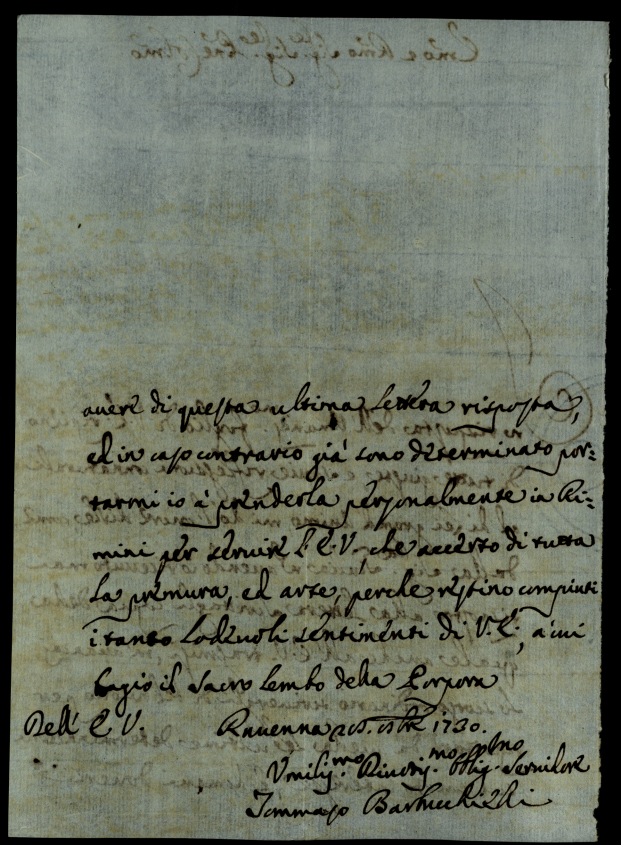 avere di questa ultima lettera risposta,
ed in caso contrario già sono determinato por=
tarmi io à prenderla personalmente in Ri=
mini per servire L'E.V., che accerto di tutta
la premura, ed arte, perche restino compiuti
i tanto lodevoli sentimenti di V.E., a cui
bagio il sacro lembo della Porpora
Dell' E. V. Ravenna 1730.
Umilis.mo Obblig. Servitore
Tommaso